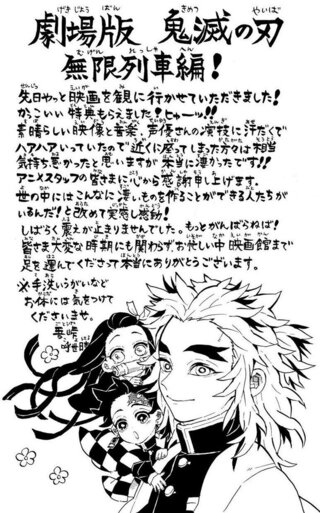 劇場版 鬼滅の刃
無限列車編！
先日やっと映画を観に行かせていただきました！
かっこいい特典もらえました！ひゃーッ!!
素晴らしい映像と音楽、声優さんの演技に汗だくで
ハアハアいっていたので近くに座ってしまった方々は相当
気持ち悪かったと思いますが本当に凄かったです!!
アニメスタッフの皆さまに心から感謝申し上げます。
世の中にはこんなに凄いものを作ることができる人たちが
いるんだ！と改めて実感し感動！
しばらく震えが止まりませんでした。もっとがんばらねば！
皆さま大変な時期にも関わらずお忙しい中映画館まで
足を運んでくださって本当にありがとうございます。
※手洗いうがいなど
お体には気をつけて
くださいませ。
吾峠
呼世晴